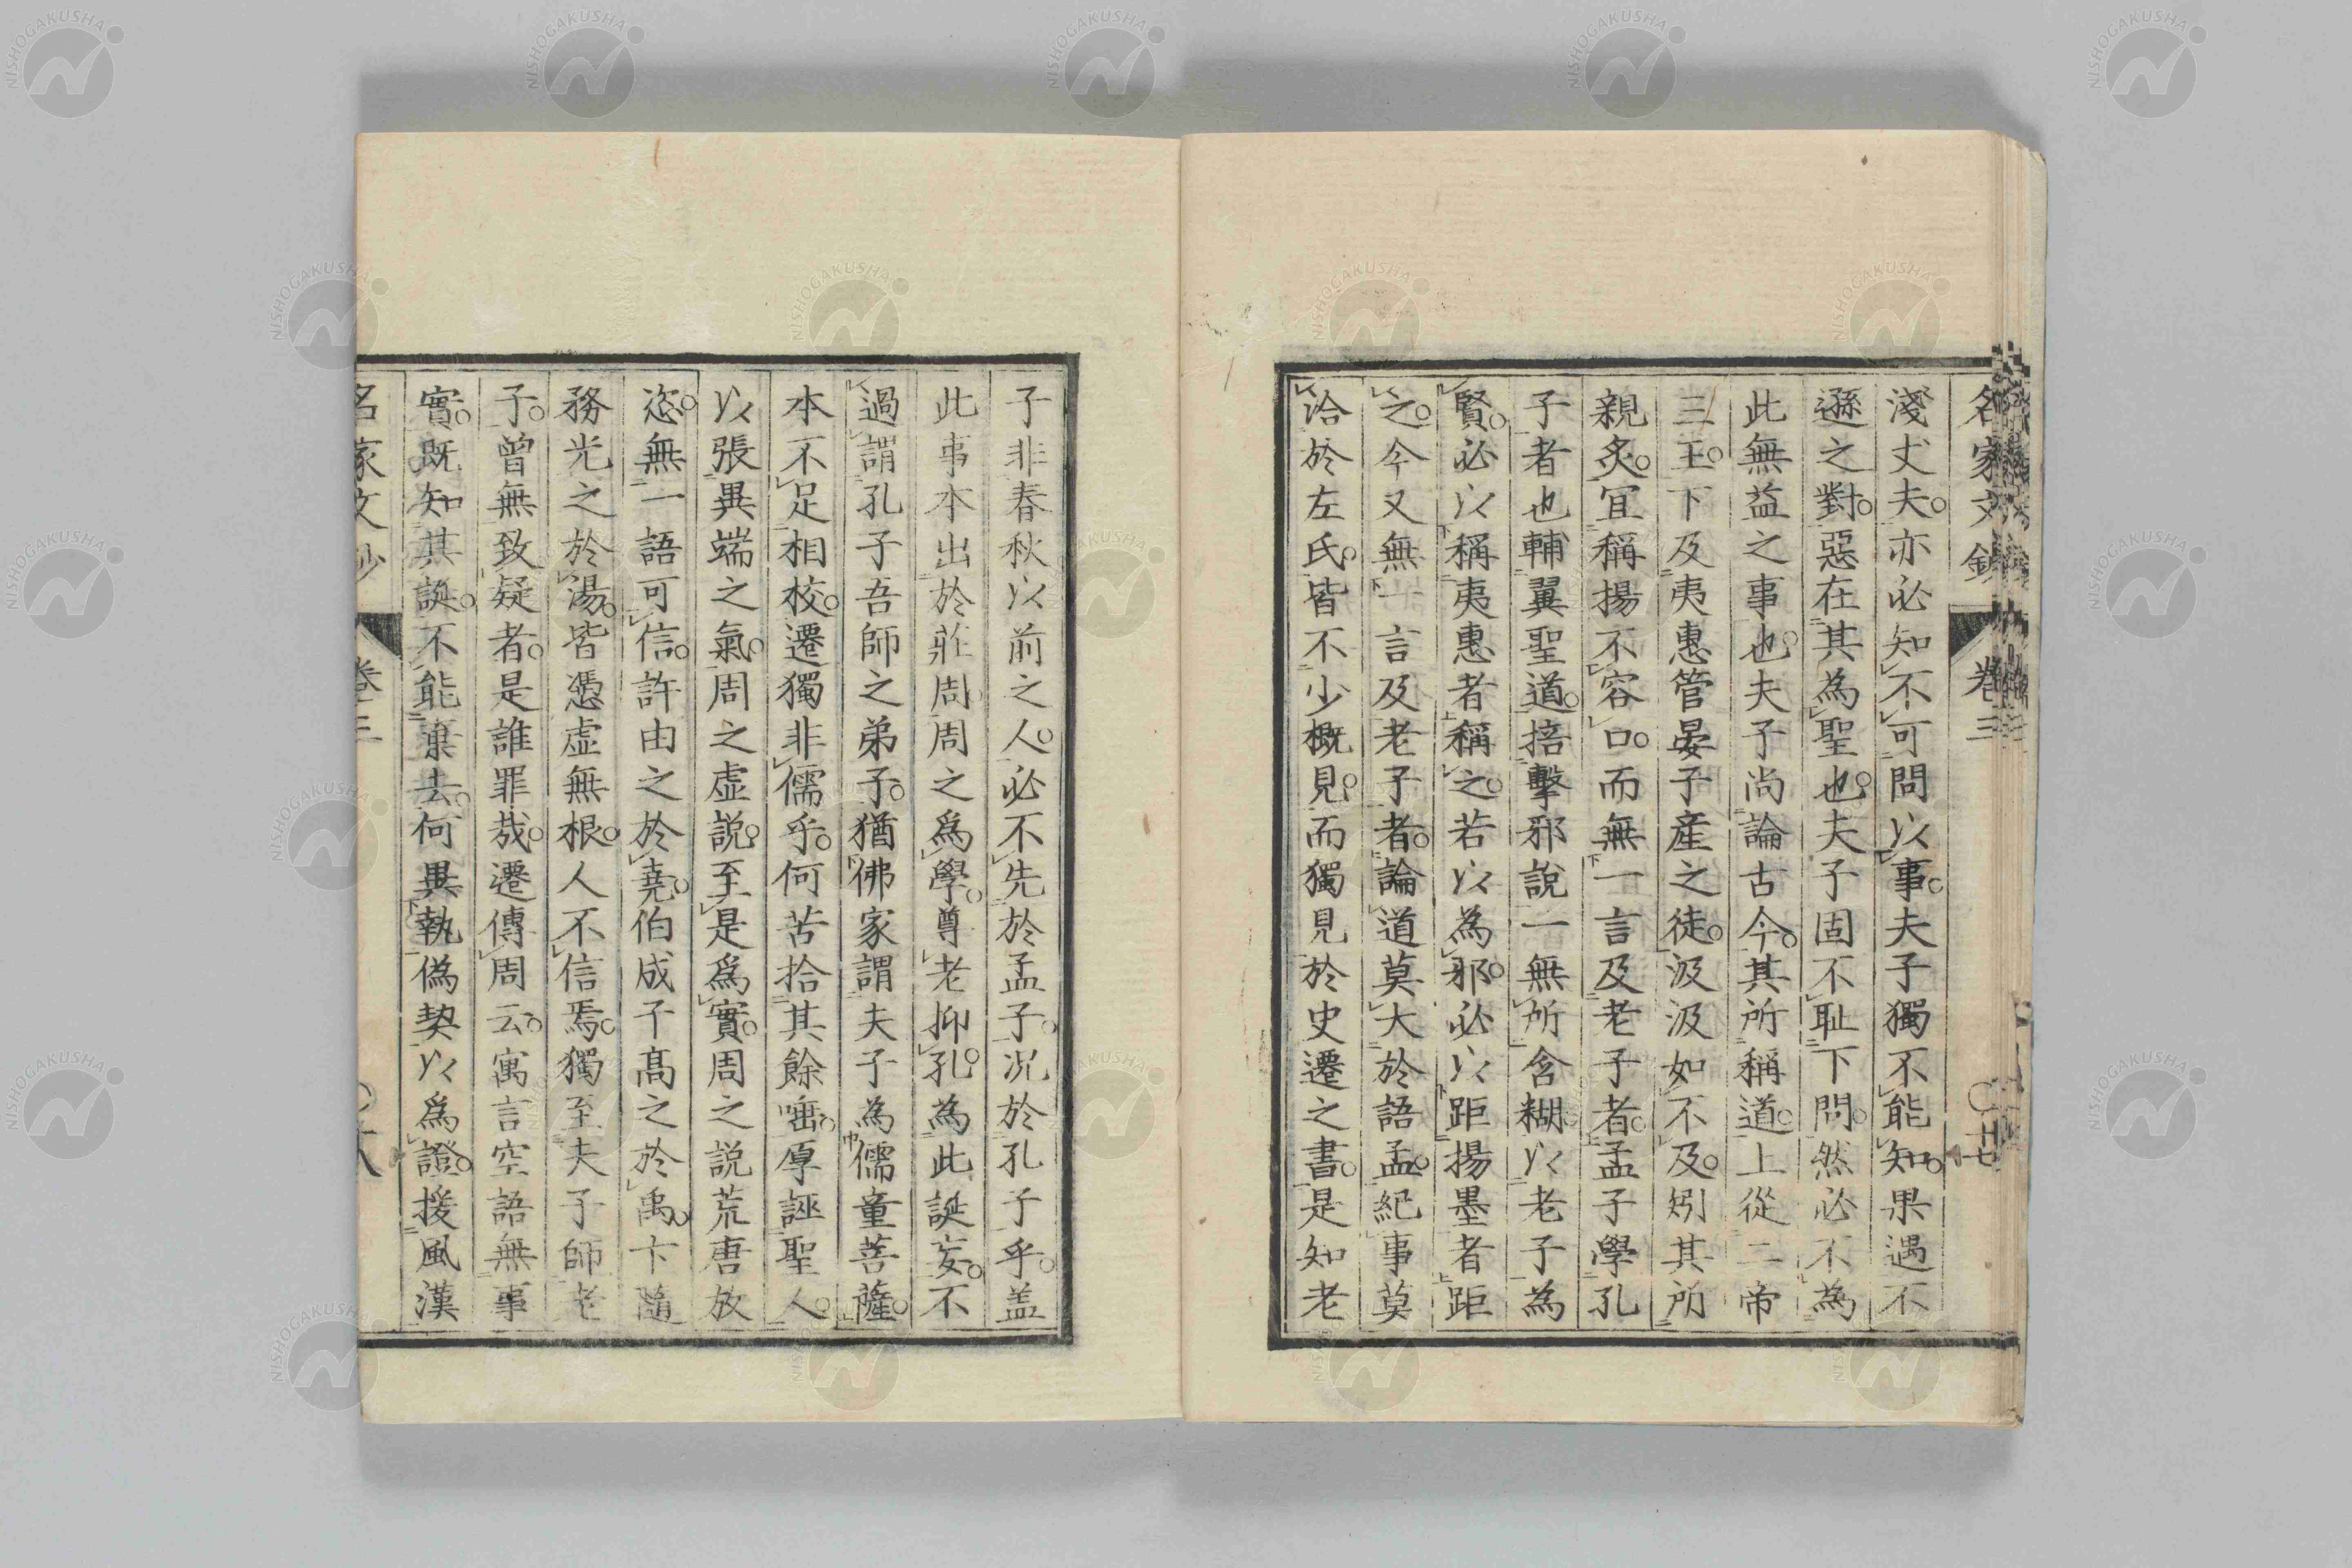 名家文鈔 卷三 〇廿七
淺丈夫。亦必知不可問以事。夫子獨不能知。果遇不
遜之對。惡在其為聖也。夫子固不耻下問。然必不為
此無益之事也。夫子尚論古今。其所稱道。上從二帝
三王。下及夷惠管晏子產之徒。汲汲如不及。矧其所
親炙。宜稱揚不容口。而無一言及老子者。孟子學孔
子者也輔翼聖道。掊擊邪說一無所含糊以老子為
賢。必以稱夷惠者稱之。若以為邪。必以距揚墨者距
之。今又無一言及老子者。論道莫大於語孟。紀事莫
洽於左氏。皆不少概見。而獨見於史遷之書。是知老
子非春秋以前之人。必不先於孟子。况於孔子乎。盖
此事本出於莊周周之爲學。尊老抑孔。為此誕妄。不
過謂孔子吾師之弟子。猶佛家謂夫子為儒童菩薩。
本不足相校。遷獨非儒乎。何苦拾其餘唾。厚誣聖人。
以張異端之氣。周之虛説。至是爲實。周之説荒唐放
恣。無一語可信。許由之於堯。伯成子高之於禹。卞隨
務光之於湯。皆憑虛無根。人不信焉。獨至夫子師老
子。曾無致疑者。是誰罪哉。遷傳周云。寓言空語無事
實。既知其誕。不能棄去。何異執偽契以爲證。援風漢
名家文鈔 卷三